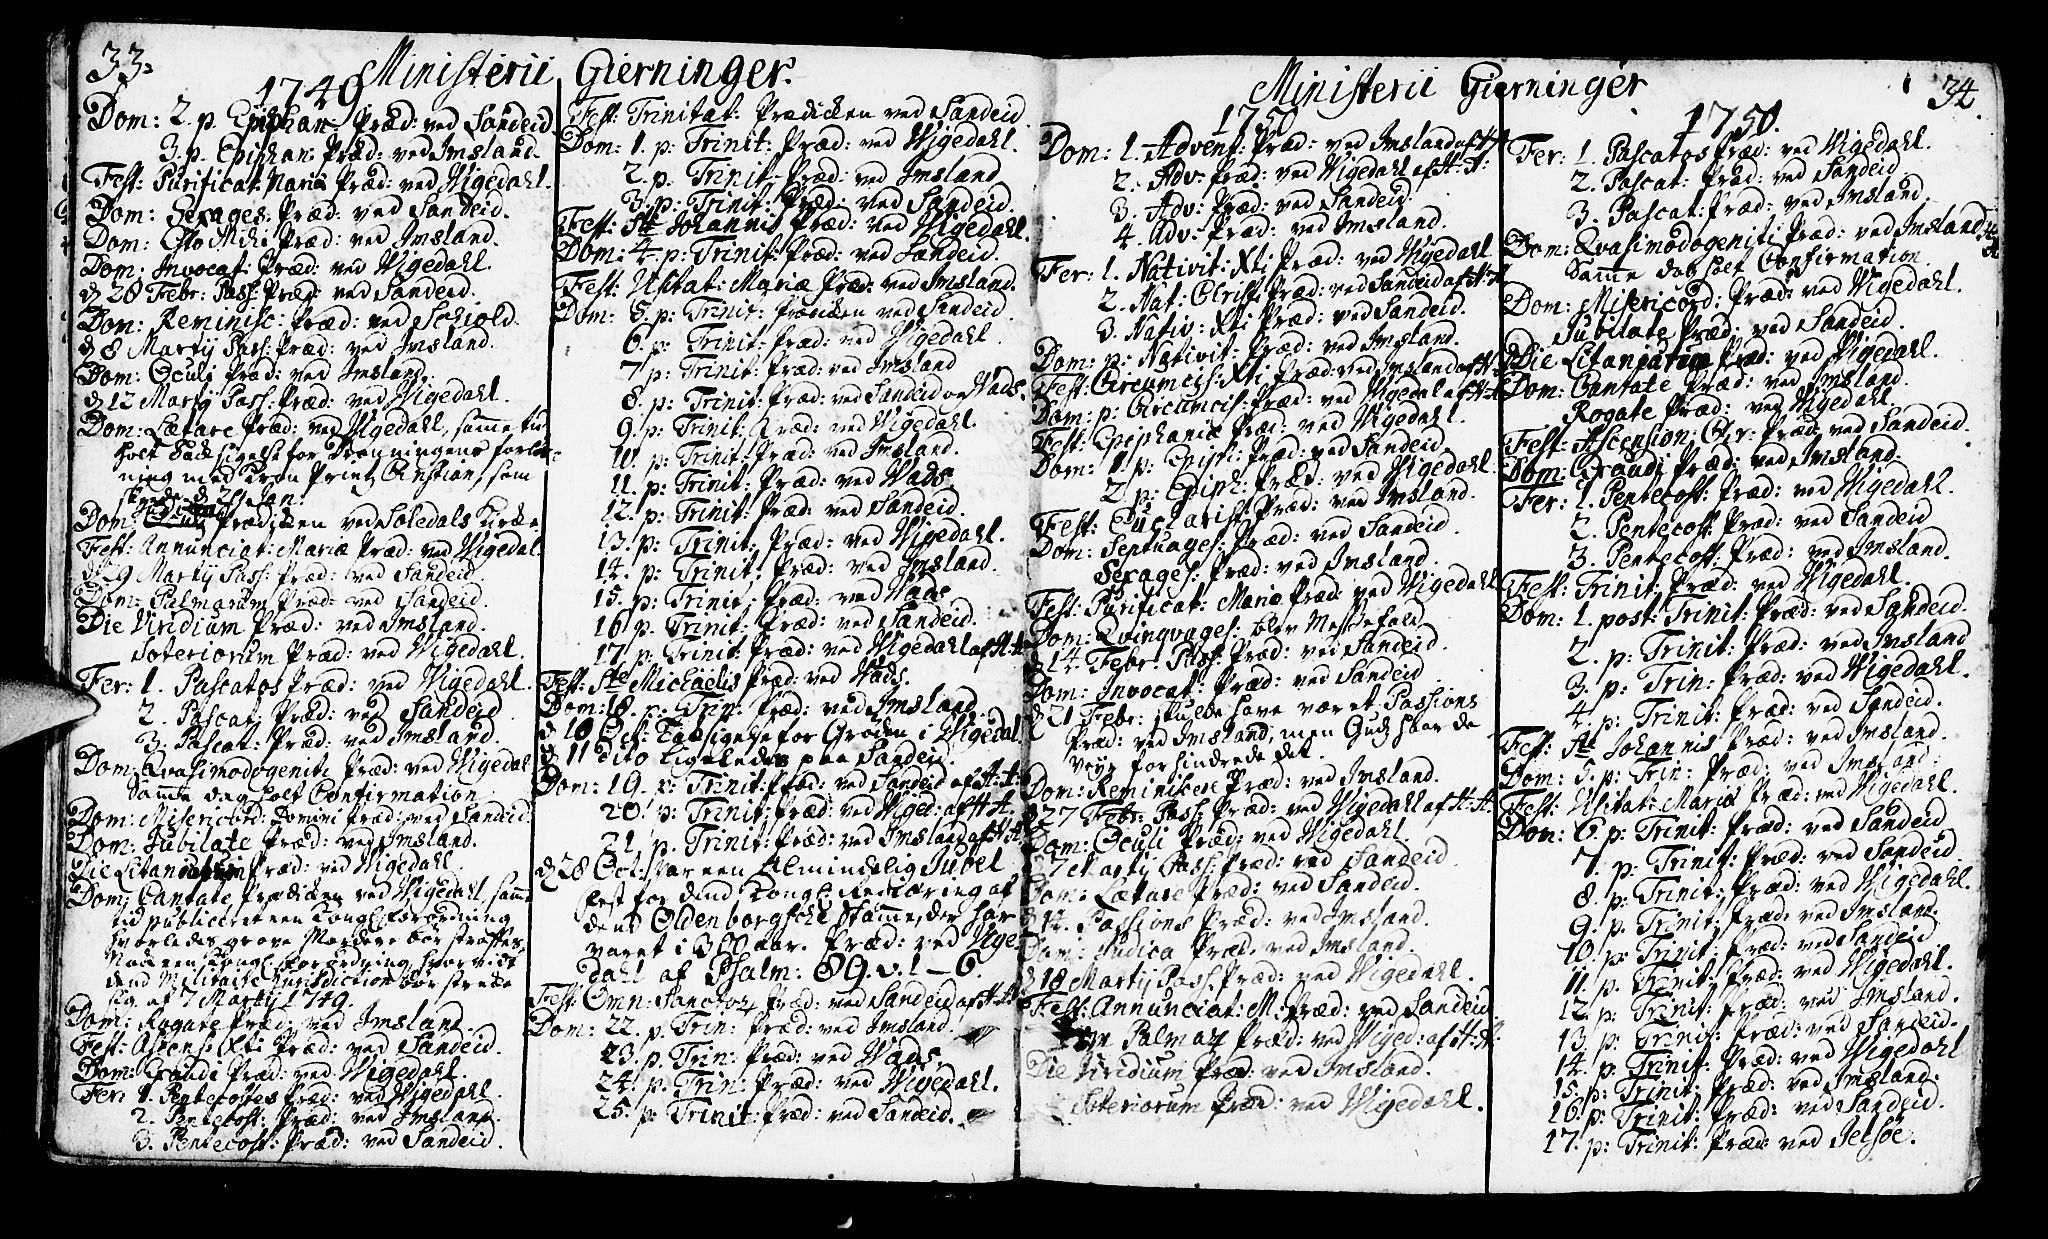 33.
Ministerii Gierninger.
1749
Dom: 2. p. Epiphan Præd: ved Sandeid
3. p. Epiphan: Præd: ved Imsland.
Fest: Purificat: Mariæ Præd: ved Vigedahl.
Dom: Sexages: Præd: ved Sandeid.
Dom: Esto Mihi Præd: ved Imsland.
Dom: Invocat: Præd: ved Vigedahl.
d 28 Febr: Pass: Præd: ved Sandeid.
Dom: Reminisc: Præd: ved Schiold.
d 8 Martij Pass: Præd: ved Imsland.
Dom: Oculi Præd: ved Imsland.
d 12 Martij Pass: Præd: ved Vigedahl.
Dom: Lætare Præd: ved Vigedahl, samme tid
holt Tack sigelse for Dronningens forløs-
ning med Kron Printz Christian, som
skeede d 29 Jan:
Dom: Prædicken ved Soledals Kirke
Fest: Annunciat: Mariæ Præd: ved Vigedal
d 29 Martij Pass: Præd: ved Sandeid.
Dom: Palmarum Præd: ved Sandeid.
Die Viridium Præd: ved Imsland.
Soteriorum Præd: ved Vigedahl.
Fer: 1. Pascatos Præd: ved Vigedahl.
2. Pascat: Præd: ved Sandeid.
3. Pascat: Præd: ved Imsland.
Dom: Qvasimodogeniti Præd: ved Vigedal
Samme dag holt Confirmation
Dom: Misericord: Domini Præd: ved Sandeid.
Dom: Jubilate Præd: ved Imsland.
Die Litan Præd: ved Vigedahl.
Dom: Cantate Prædicken ved Vigedahl, samme
tid publiceret een Kongl: Forordning
hvorledes grove Mordere bør straffes
Nok een Kongl: Forordning, hvor vidt
dend Militaire Jurisdiction bør strecke
sig af 7 Martij 1749.
Dom: Rogate Præd: ved Imsland.
Fest: Ascens: Xti Præd: ved Sandeid.
Dom: Exaudi Præd: ved Vigedahl.
Fer: 1. Pentecostes Præd: ved Vigedahl.
2. Pentecost: Præd: ved Imsland.
3. Pentecost: Præd: ved Sandeid.
Fest: Trinitat: Prædicken ved Sandeid.
Dom: 1. p: Trinit: Præd: ved Vigedahl.
2. p: Trinit: Præd: ved Imsland
3. p: Trinit: Præd: ved Sandeid.
Fest: St: Johannis Præd: ved Vigedahl.
Dom: 4. p: Trinit: Præd: ved Sandeid.
Fest: Visitat: Mariæ Præd: ved Imsland.
Dom: 5. p: Trinit: Prædicken ved Sandeid.
6. p: Trinit: Præd: ved Vigedahl.
7. p: Trinit: Præd: ved Imsland
8. p: Trinit: Præd: ved Sandeid og Vads.
9. p: Trinit: Præd: ved Vigedahl
10. p: Trinit: Præd: ved Imsland.
11. p: Trinit: Præd: ved Vads.
12. p: Trinit: Præd: ved Sandeid.
13. p: Trinit: Præd: ved Vigedahl.
14. p: Trinit: Præd: ved Imsland.
15. p: Trinit: Præd: ved Vads
16. p. Trinit: Præd: ved Sandeid.
17. p: Trinit: Præd: ved Vigedahl af H: A:
Fest: Ste Michaelis Præd: ved Vads.
Dom: 18. p: Trin: Præd: ved Imsland.
d 10 Oct: Tacksigelse for Grøden i Vigedal
d 11 dito ligeledes paa Sandeid.
Dom: 19. p: Trinit: Præd: ved Sandeid af H: A:
20. p: Trinit: Præd: ved Viged: af H A.
21. p: Trinit: Præd: ved Imsland af H: A.
d 28 Oct: var een Almindelig Jubel
Fest for dend Kongl: Regiæring af
dend Oldenborgsche Stamme, der har
varet i 300 aar. Præd: ved Vige
dahl af Psalm: 89. v. 1–6.
Fest: Omn: Sanctor: Præd: ved Sandeid af H: A:
Dom: 22. p. Trin: Præd: ved Imsland.
23. p. Trin: Præd: ved Vads.
24. p: Trin: Præd: ved Vigedahl.
25. p: Trinit: Præd: ved Sandeid.
Ministerii Gierninger
34
1750
Dom: 1. Advent: Præd: ved Imsland af H: A
2. Adv: Præd: ved Vigedahl af H: A:
3. Adv: Præd: ved Sandeid.
4. Adv: Præd: ved Imsland.
Fer: 1. Nativit: Xti Præd: ved Vigedahl
2. Nat: Christi Præd: ved Sandeid af H: A
3. Nativ: Xti Præd: ved Sandeid.
Dom: p: Nativit: Præd: ved Imsland.
Fest: Circumcis: Xti Præd: ved Imsland af H: A
Dom: p: Circumcis: Præd: ved Vigedal af H: A
Fest: Epiphaniæ Præd: ved Vigedahl.
Dom: 1. p: Epiph: Præd: ved Sandeid
2. p: Epiph: Præd: ved Vigedahl.
Fest: Eucharist: Præd: ved Imsland.
Dom: Septuages: Præd: ved Sandeid
Sexages: Præd: ved Imsland.
Fest: Purificat: Mariæ Præd: ved Vigedahl
Dom: Qvinqvages: blev Messefald.
d 14. Febr: Pass: Præd: ved Sandeid.
Dom: Invocat: Præd: ved Sandeid
d 21 Febr: skulde have været Passions
Præd: ved Imsland, men Guds haarde
Veyr forhindrede det.
Dom: Reminiscere Præd: ved Imsland.
d 27 Febr: Pass: Præd: ved Vigedahl af H: A:
Dom: Oculi Præd: ved Vigedahl
d 7 Martij Pass: Præd: ved Sandeid.
Dom: Lætare Præd: ved Sandeid.
d 14. Passions Præd: ved Imsland.
Dom: Judica Præd: ved Imsland.
d 18 Martij Pass: Præd: ved Vigedahl.
Fest: Annunciat: M: Præd: ved Sandeid
Palmar Præd: ved Viged: af H: A:
Die Viridium Præd: ved Imsland.
Soteriorum Præd: ved Vigedahl.
1750.
Fer: 1. Pascatos Præd: ved Vigedahl.
2. Pascat: Præd: ved Sandeid
3. Pascat: Præd: ved Imsland.
Dom: Qvasimodogeniti Præd: ved Imsland H: A
Samme dag holt Confirmation.
Dom: Misericord: Præd: ved Vigedahl.
Jubilate Præd: ved Sandeid.
Die Litan Præd: ved Vigedahl.
Dom: Cantate Præd: ved Imsland.
Rogate Præd: ved Vigedahl.
Fest: Ascension: Chr: Præd: ved Sandeid.
Dom: Exaudi Præd: ved Imsland.
Fer: 1. Pentecost: Præd: ved Vigedahl.
2. Pentecost: Præd: ved Sandeid
3. Pentecost: Præd: ved Imsland.
Fest: Trinit: Præd: ved Vigedahl.
Dom: 1. post: Trinit: Præd: ved Sandeid.
2. p: Trinit: Præd: ved Imsland
3. p: Trin: Præd: ved Vigedahl.
4. p: Trinit: Præd: ved Sandeid.
Fest: St Johannis Præd: ved Imsland.
Dom: 5. p: Trin: Præd: ved Imsland.
Fest: Visitat: Mariæ Præd: ved Vigedahl.
Dom: 6. p: Trinit: Præd: ved Sandeid
7. p: Trinit: Præd: ved Sandeid.
8. p: Trinit: Præd: ved Vigedahl.
9. p: Trinit: Præd: ved Imsland.
10. p: Trinit: Præd: ved Sandeid
11. p. Trinit: Præd: ved Vigedahl.
12. p: Trinit: Præd: ved Imsland.
13. p: Trinit: Præd: ved Sandeid.
14. p: Trinit: Præd: ved Vigedahl
15. p: Trinit: Præd: ved Imsland.
16. p: Trinit: Præd: ved Sandeid.
17. p: Trinit: Præd: ved Jelsøe.